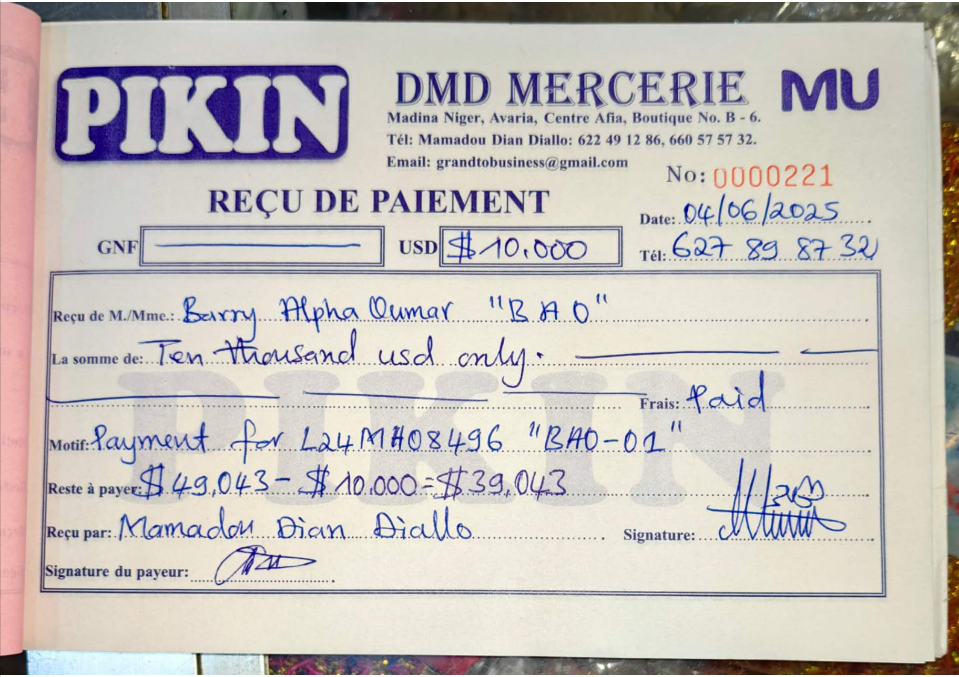 PIKIN
DMD MERCERIE
MU
Madina Niger, Avaria, Centre Afia, Boutique No. B - 6.
Tél: Mamadou Dian Diallo: 622 49 12 86, 660 57 57 32.
Email: grandtobusiness@gmail.com
No: 0000221
REÇU DE PAIEMENT
Date: 04/06/2025
GNF USD $10.000
Tél: 627 89 87 32
Reçu de M./Mme.: Barry Alpha Oumar "BAO"
La somme de: Ten thousand usd only.
PIKIN
Frais: Paid
Motif: Payment for L24MH08496 "BAO-01"
Reste à payer: $49,043 - $10.000 = $39,043
Reçu par: Mamadou Dian Diallo
Signature:
Signature du payeur: